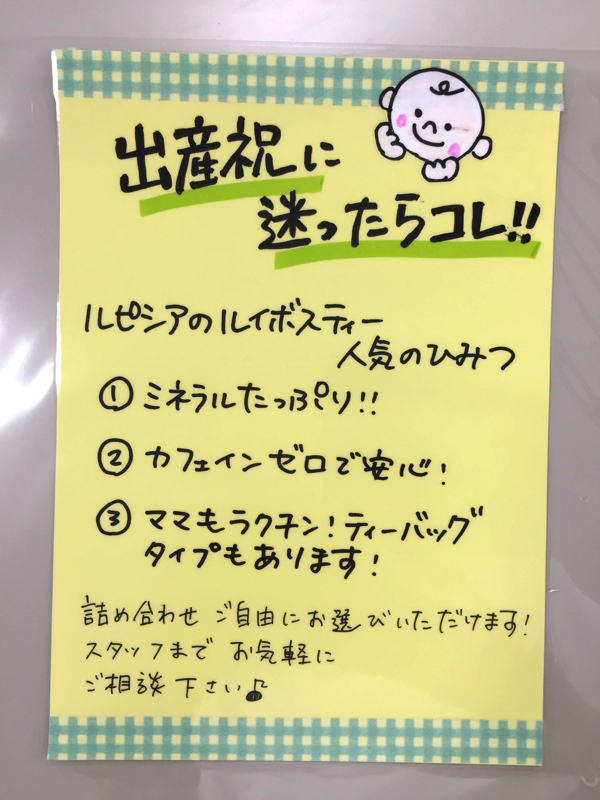 出産祝に
迷ったらコレ!!
ルピシアのルイボスティー
人気のひみつ
① ミネラルたっぷり!!
② カフェインゼロで安心!
③ ママもラクチン!ティーバッグ
タイプもあります!
詰め合わせ ご自由にお選びいただけます!
スタッフまで お気軽に
ご相談下さい♪